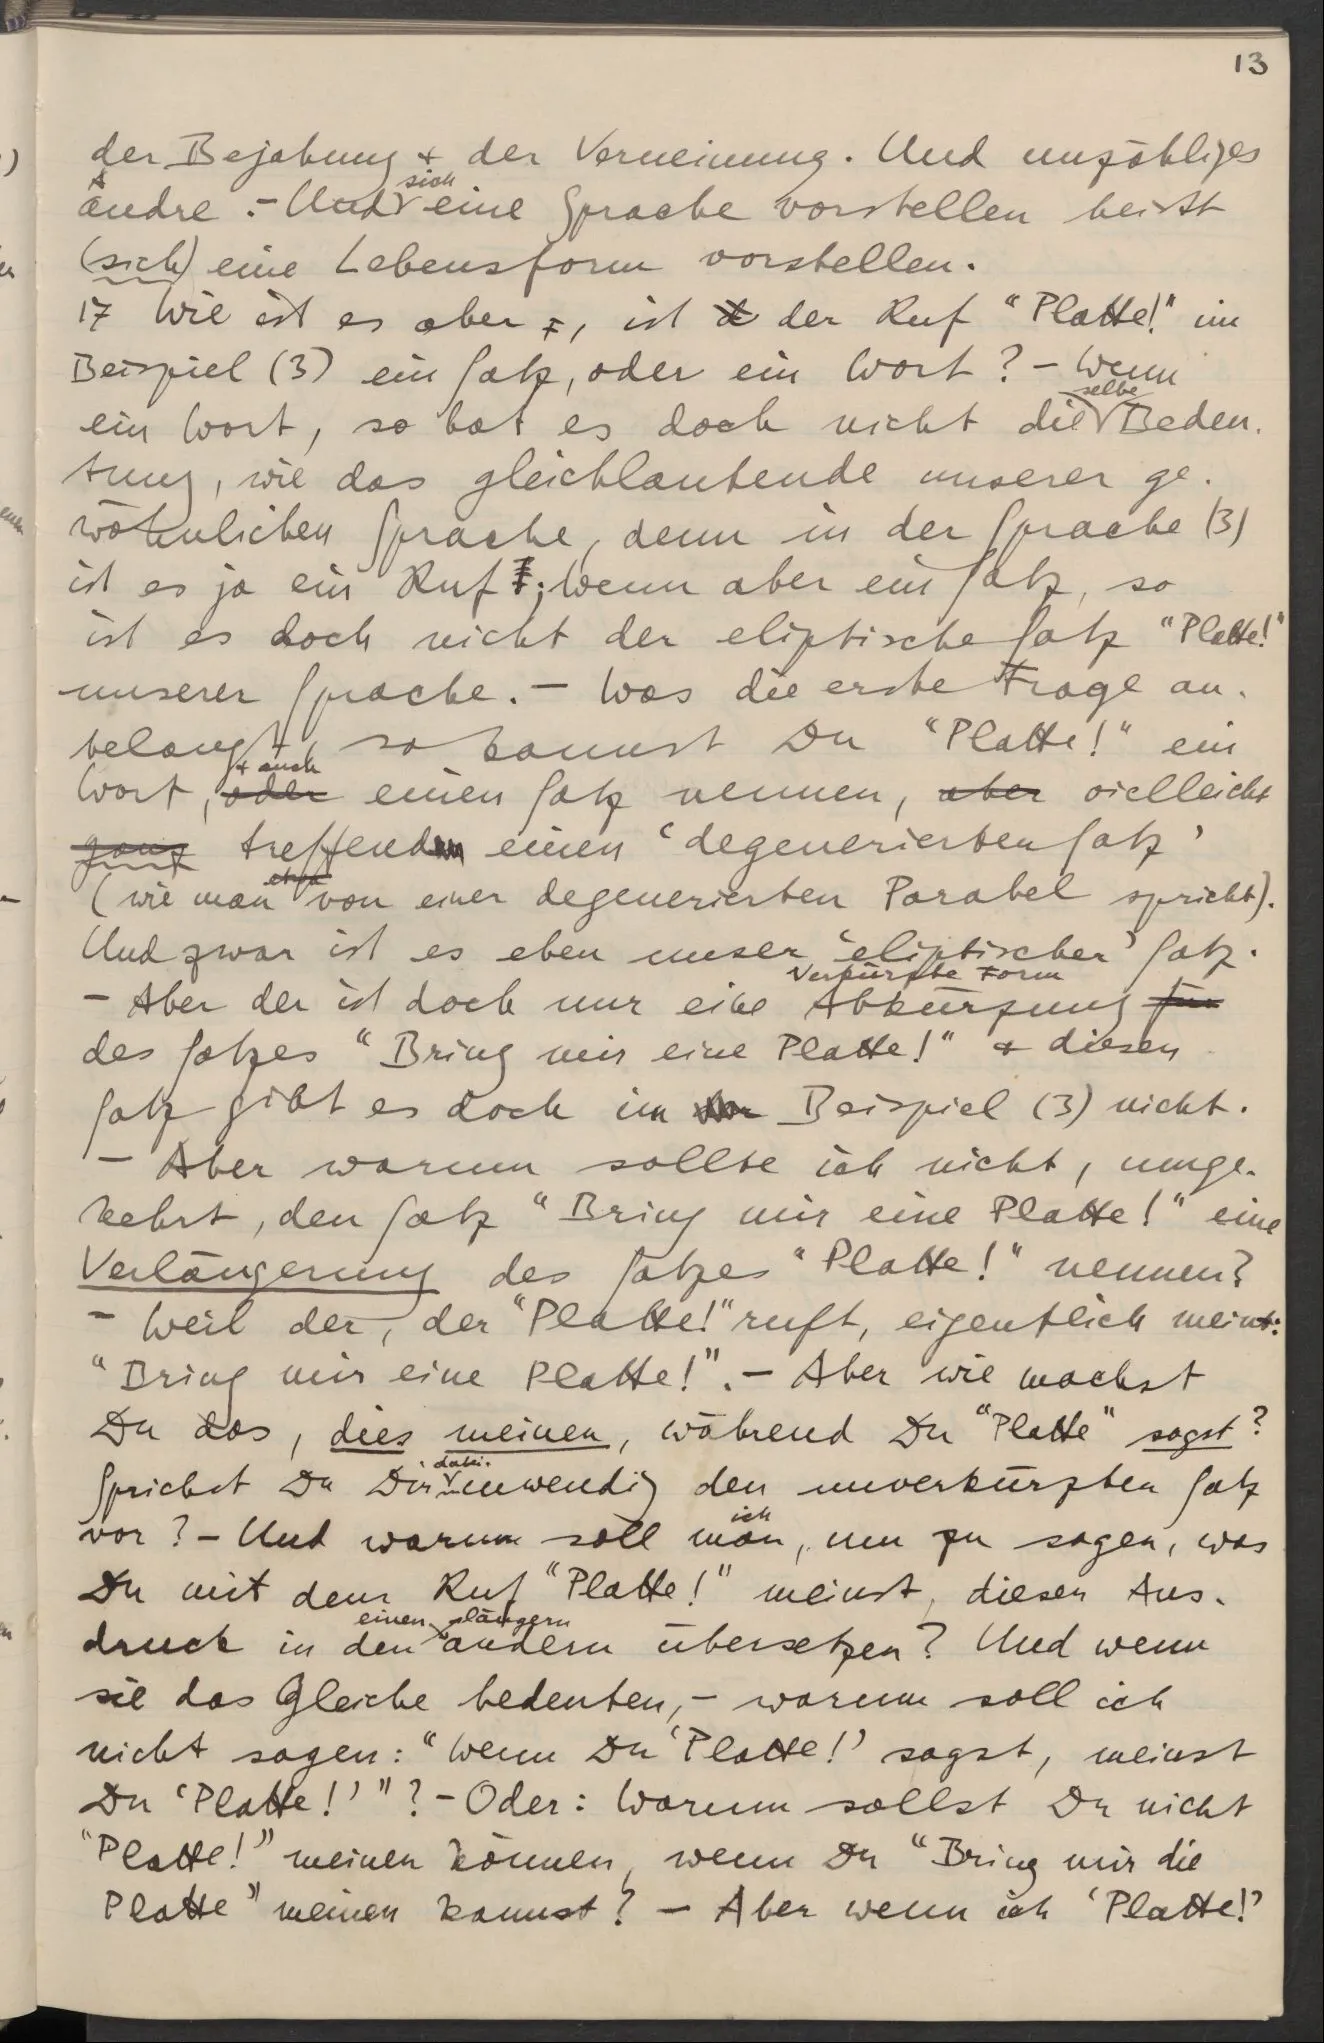 13
der Bejahung + der Verneinung. Und unzähliges
Andre. – Und sich eine Sprache vorstellen heisst
(sich) eine Lebensform vorstellen.
17 Wie ist es aber, ist der Ruf "Platte!" im
Beispiel (3) ein Satz, oder ein Wort? – Wenn
ein Wort, so hat es doch nicht die selbe Bedeu-
tung, wie das gleichlautende unserer ge-
wöhnlichen Sprache, denn in der Sprache (3)
ist es ja ein Ruf; wenn aber ein Satz, so
ist es doch nicht der eliptische Satz "Platte!"
unserer Sprache. – Was die erste Frage an-
belangt, so kannst Du "Platte!" ein
Wort, oder + auch einen Satz nennen, aber vielleicht
ganz treffend einen 'degenerierten Satz'
(wie man etwa von einer degenerierten Parabel spricht).
Und zwar ist es eben unser 'eliptischer' Satz.
– Aber der ist doch nur eine Abkürzung verkürzte Form für
des Satzes "Bring mir eine Platte!" + diesen
Satz gibt es doch im Beispiel (3) nicht.
– Aber warum sollte ich nicht, umge-
kehrt, den Satz "Bring mir eine Platte!" eine
Verlängerung des Satzes "Platte!" nennen?
– Weil der, der "Platte!" ruft, eigentlich meint:
"Bring mir eine Platte!". – Aber wie machst
Du das, dies meinen, während Du "Platte" sagst?
Sprichst Du Dir dabei inwendig den unverkürzten Satz
vor? – Und warum soll man ich, um zu sagen, was
Du mit dem Ruf "Platte!" meinst, diesen Aus-
druck in den einen längern andern übersetzen? Und wenn
sie das Gleiche bedeuten, – warum soll ich
nicht sagen: "Wenn Du 'Platte!' sagst, meinst
Du 'Platte!'"? – Oder: Warum sollst Du nicht
"Platte!" meinen können, wenn Du "Bring mir die
Platte" meinen kannst? – Aber wenn ich 'Platte!'